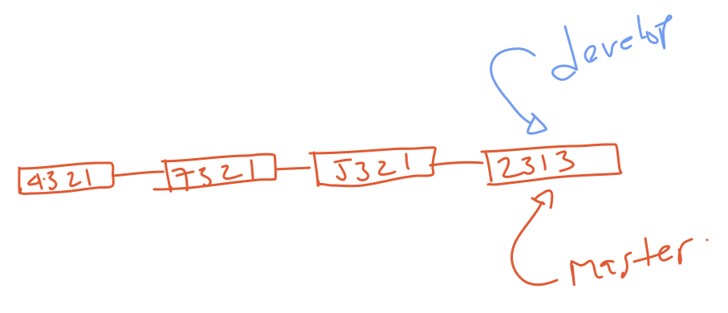 develop
4321 7321 J321 2313
Master.